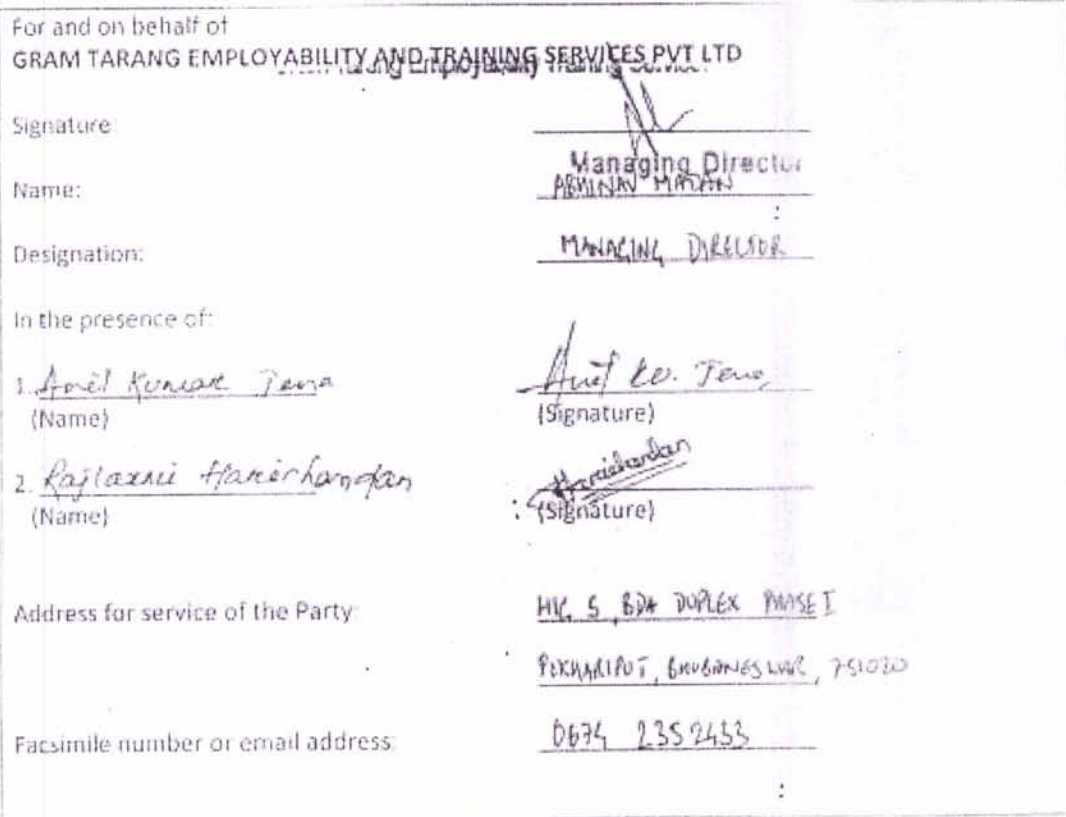 For and on behalf of
GRAM TARANG EMPLOYABILITY AND TRAINING SERVICES PVT LTD
Signature:
Managing Director
Name: ABHINAV MADAN
Designation: MANAGING DIRECTOR
In the presence of:
1. Anil Kumar Jena Anil Ku. Jena
(Name) (Signature)
2. Rajlaxmi Harichandan Harichandan
(Name) (Signature)
Address for service of the Party: 5 BDA DUPLEX PHASE I
POKHARIPUT, BHUBANESWAR, 751020
Facsimile number or email address: 0674 2352433